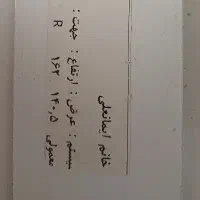 خانم ایمانعلی
سیستم : عرض : ارتفاع : جهت :
معمولی ۱۴۰٫۵ ۱۶۲ R